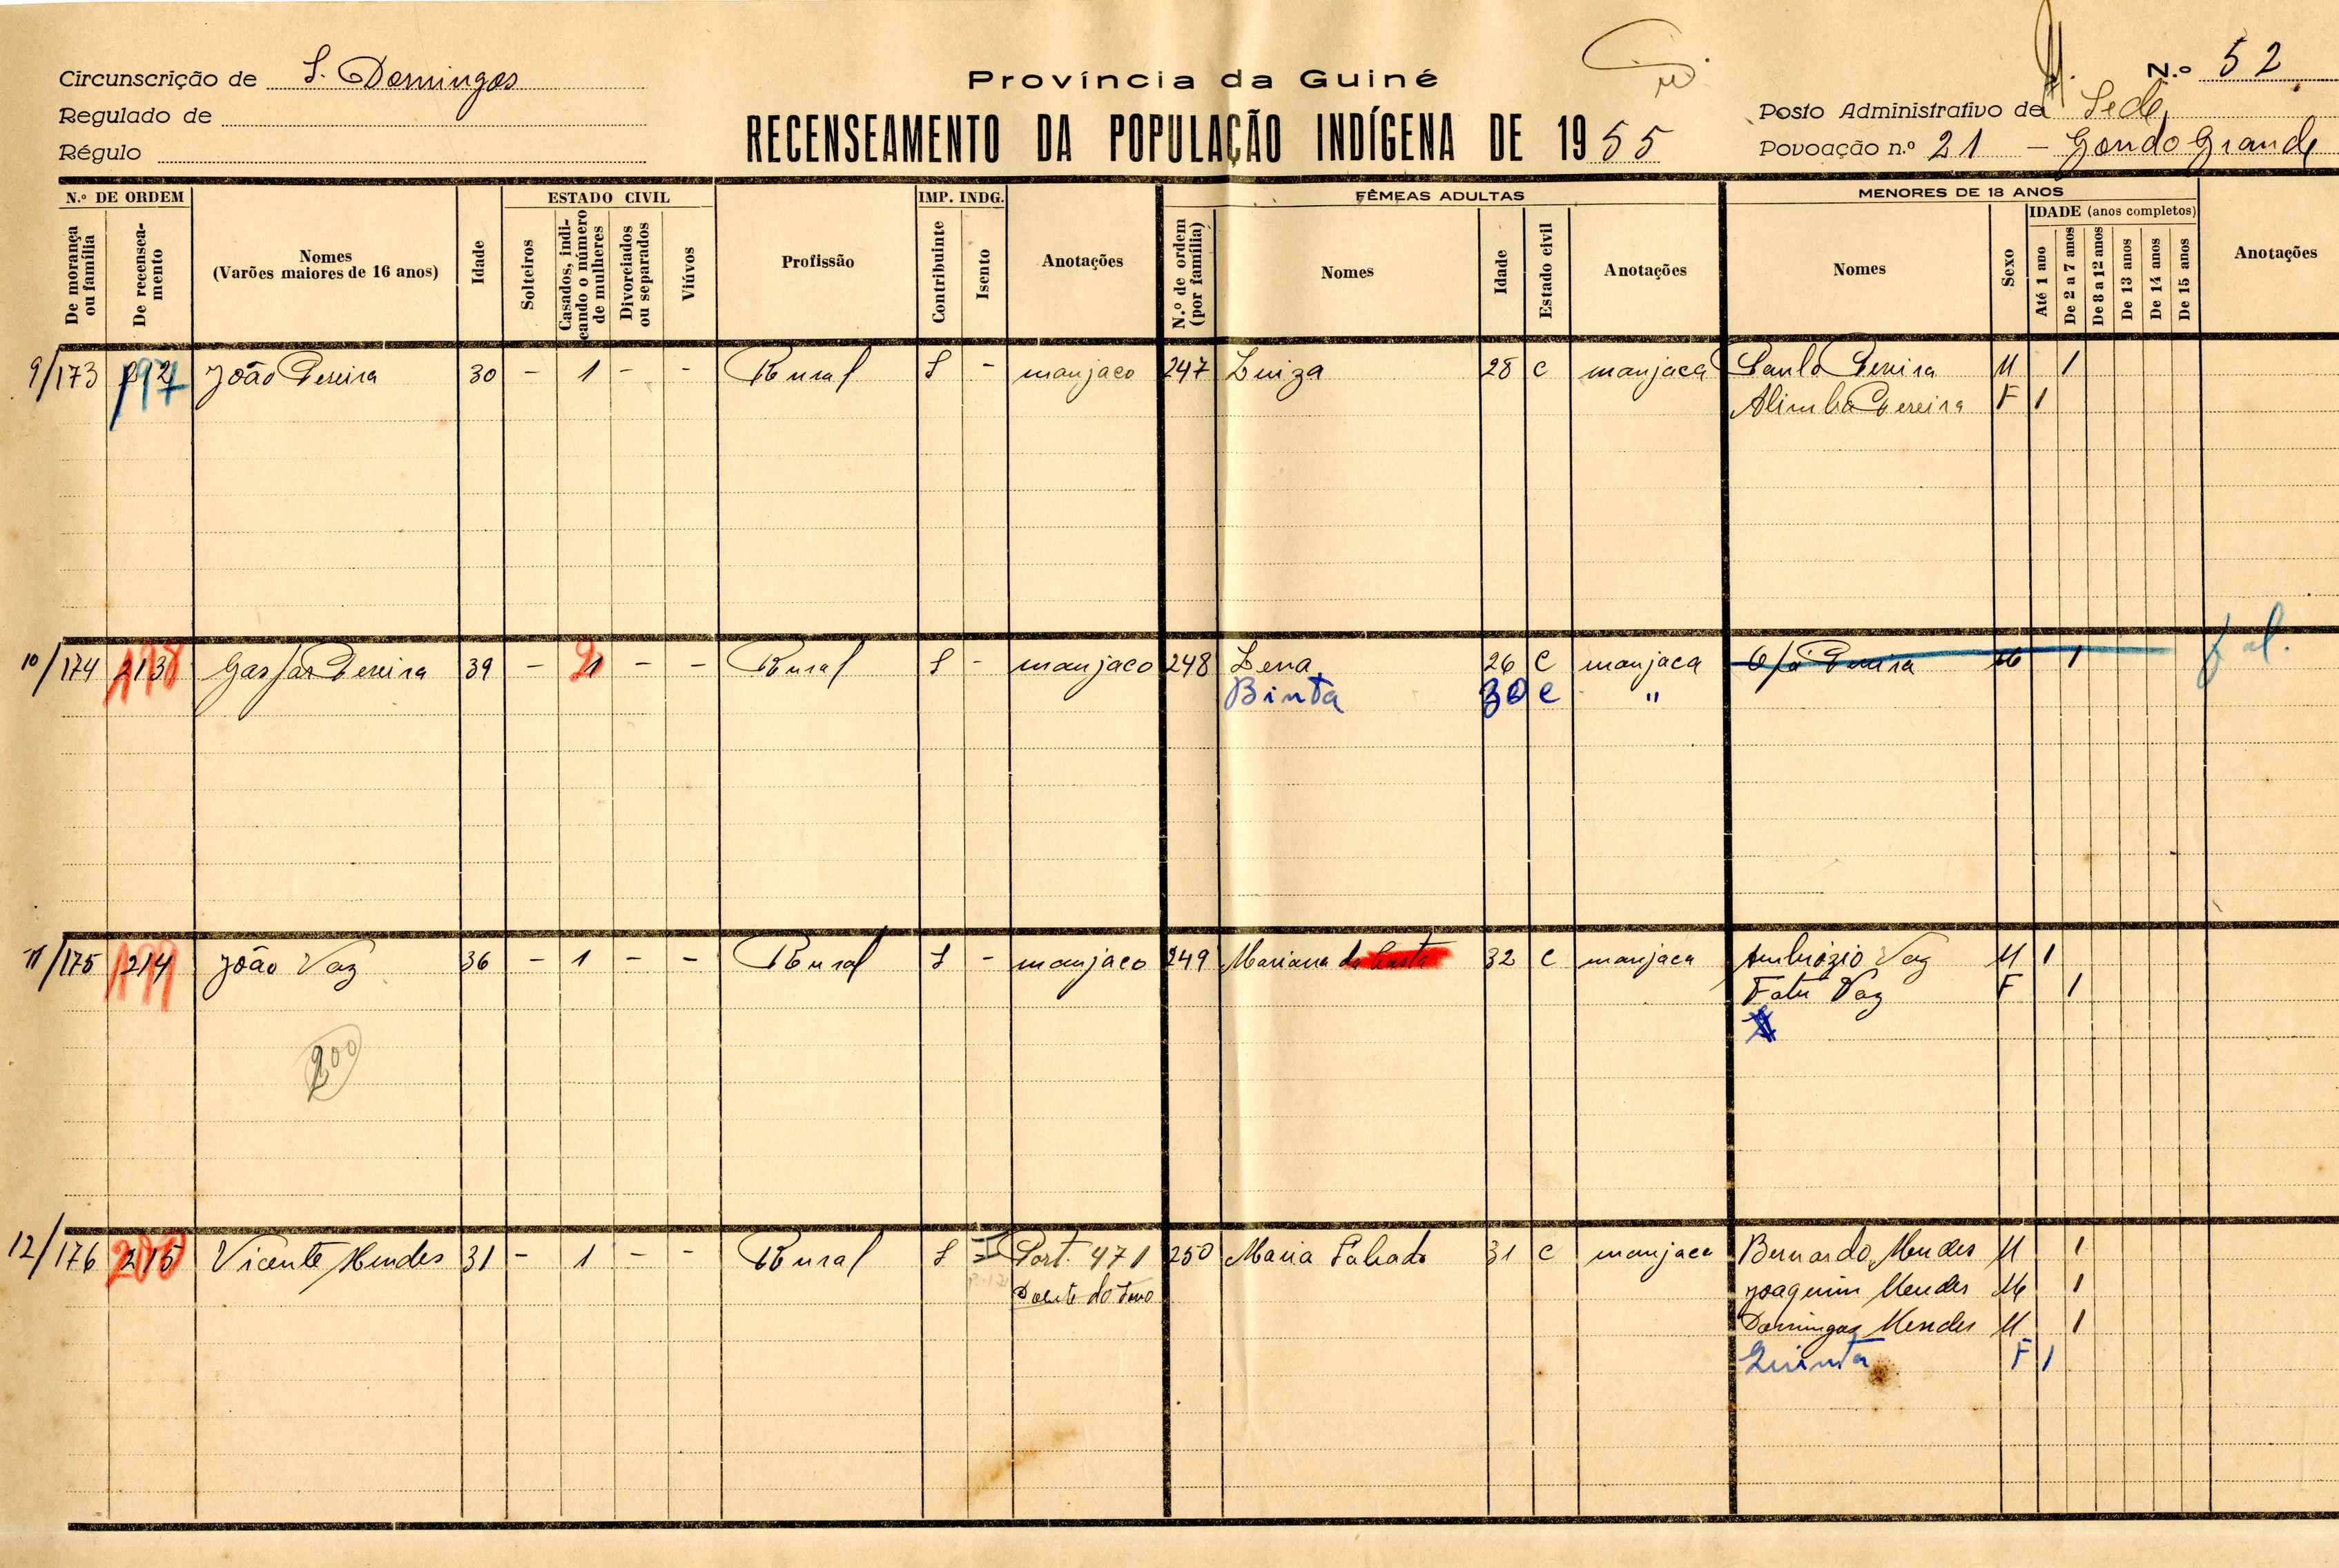 Circunscrição de S. Domingos
Regulado de
Régulo
Província da Guiné
RECENSEAMENTO DA POPULAÇÃO INDÍGENA DE 1955
N.º 52
Posto Administrativo de Sede
Povoação n.º 21 - Gondo Grande
N.º DE ORDEM
De morança ou família
De recenseamento
Nomes
(Varões maiores de 16 anos)
Idade
ESTADO CIVIL
Solteiros
Casados, indicando o número de mulheres
Divorciados ou separados
Viúvos
Profissão
IMP. INDG.
Contribuinte
Isento
Anotações
FÊMEAS ADULTAS
N.º de ordem (por família)
Nomes
Idade
Estado civil
Anotações
MENORES DE 18 ANOS
Nomes
Sexo
IDADE (anos completos)
Até 1 ano
De 2 a 7 anos
De 8 a 12 anos
De 13 anos
De 14 anos
De 15 anos
Anotações
9/173 197 João Pereira 30 - 1 - - Rural S - manjaco 247 Luiza 28 C manjaca Paulo Pereira M 1
Alimba Pereira F 1
10/174 213 198 Gaspar Pereira 39 - 2 - - Rural S - manjaco 248 Lena 26 C manjaca Pereira M 1 fal.
Binta 30 C "
11/175 214 199 João Vaz 36 - 1 - - Rural S - manjaco 249 Mariana da Costa 32 C manjaca Ambrózio Vaz M 1
Fatu Vaz F 1
200
12/176 215 200 Vicente Mendes 31 - 1 - - Rural S Port. 471 250 Maria 31 C manjaca Bernardo Mendes M 1
Joaquim Mendes M 1
Domingos Mendes M 1
Quinta F 1